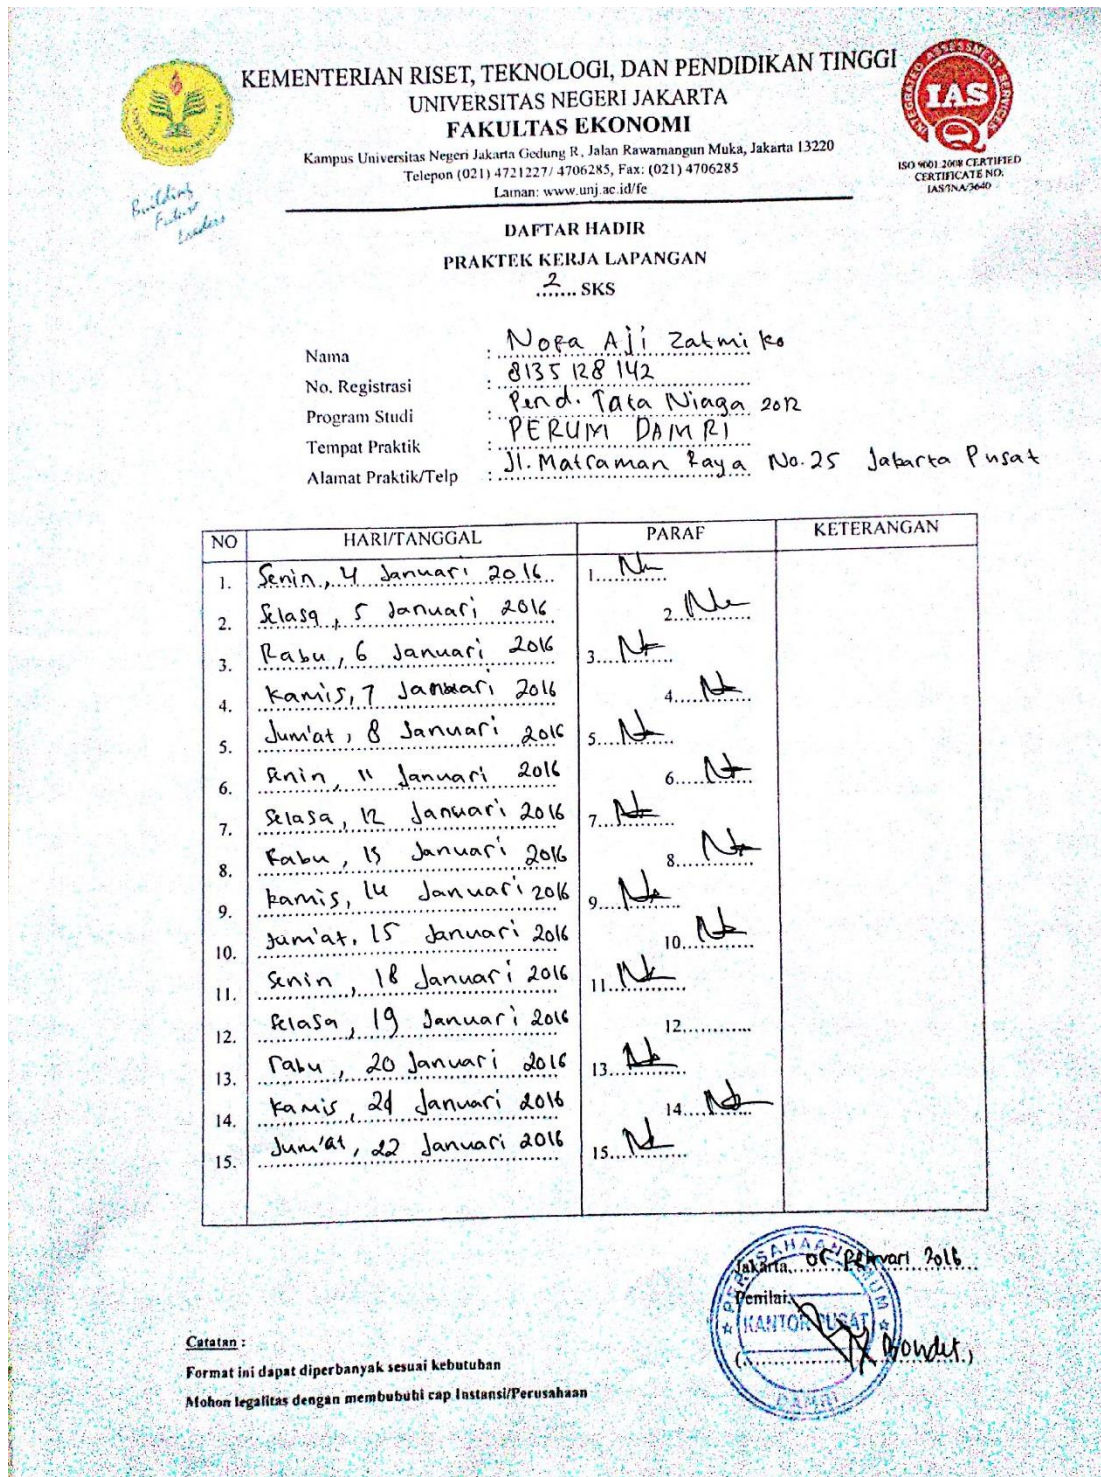 KEMENTERIAN RISET, TEKNOLOGI, DAN PENDIDIKAN TINGGI
UNIVERSITAS NEGERI JAKARTA
FAKULTAS EKONOMI
Kampus Universitas Negeri Jakarta Gedung R, Jalan Rawamangun Muka, Jakarta 13220
Telepon (021) 4721227/ 4706285, Fax: (021) 4706285
Laman: www.unj.ac.id/fe
Building
Future
Leaders
INTEGRATED ASSESSMENT SERVICES
IAS
ISO 9001:2008 CERTIFIED
CERTIFICATE NO:
IAS/INA/3640
DAFTAR HADIR
PRAKTEK KERJA LAPANGAN
2 SKS
Nama : Nofa Aji Zatmiko
No. Registrasi : 8135128142
Program Studi : Pend. Tata Niaga 2012
Tempat Praktik : PERUM DAMRI
Alamat Praktik/Telp : Jl. Matraman Raya No. 25 Jakarta Pusat
NO HARI/TANGGAL PARAF KETERANGAN
1. Senin, 4 Januari 2016 1.
2. Selasa, 5 Januari 2016 2.
3. Rabu, 6 Januari 2016 3.
4. Kamis, 7 Januari 2016 4.
5. Jum'at, 8 Januari 2016 5.
6. Senin, 11 Januari 2016 6.
7. Selasa, 12 Januari 2016 7.
8. Rabu, 13 Januari 2016 8.
9. Kamis, 14 Januari 2016 9.
10. Jum'at, 15 Januari 2016 10.
11. Senin, 18 Januari 2016 11.
12. Selasa, 19 Januari 2016 12.
13. rabu, 20 Januari 2016 13.
14. Kamis, 21 Januari 2016 14.
15. Jum'at, 22 Januari 2016 15.
Jakarta, 2016
Penilai,
PERUSAHAAN UMUM
KANTOR PUSAT
DAMRI
Catatan :
Format ini dapat diperbanyak sesuai kebutuhan
Mohon legalitas dengan membubuhi cap Instansi/Perusahaan